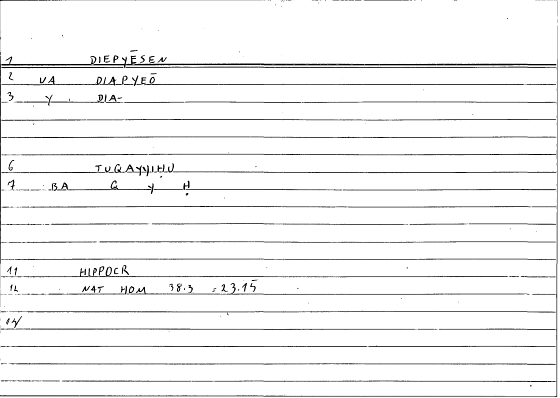 1 DIEPYĒSEN
2 VA DIAPYEŌ
3 Y . DIA-
6 TUQAYYIḤU
7 BA Q Y Ḥ
11 HIPPOCR
12 NAT HOM 38.3 = 23.15
14/